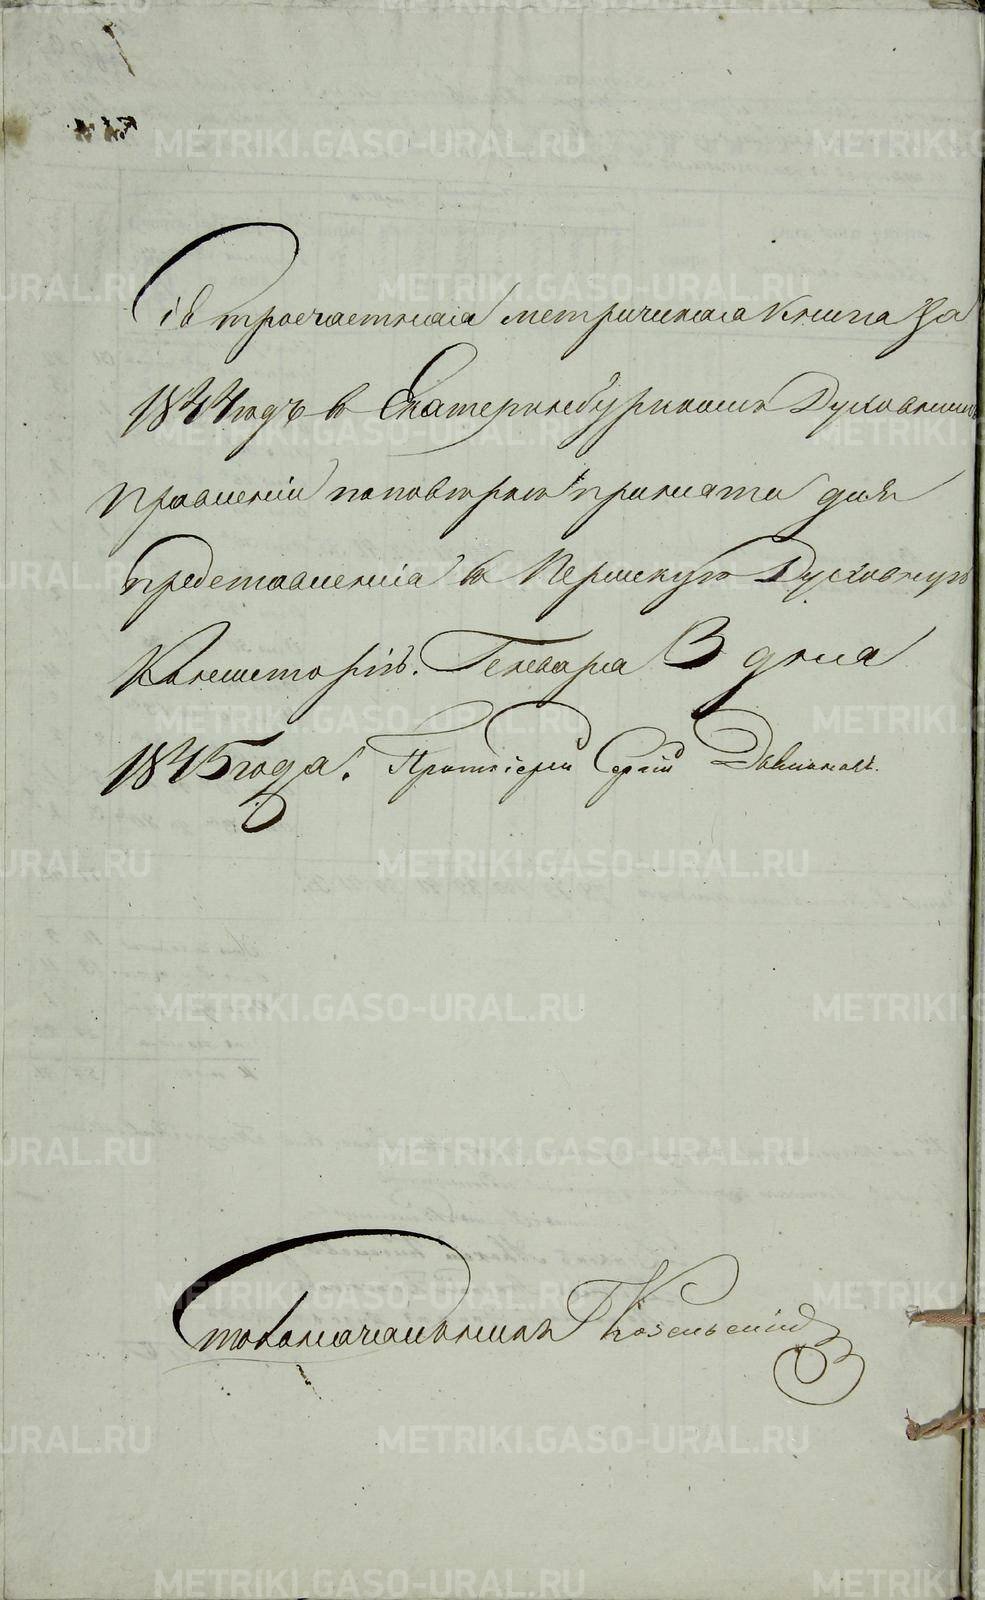 Сія троечастная метрическая книга за
1844 годъ въ Екатеринбургскомъ Духовномъ
Правленіи по повѣркѣ принята для
представленія въ Пермскую Духовную
Консисторію. Генваря 3 дня
1845 года. Протоіерей Сергій
Столоначальникъ Козельскій
METRIKI.GASO-URAL.RU